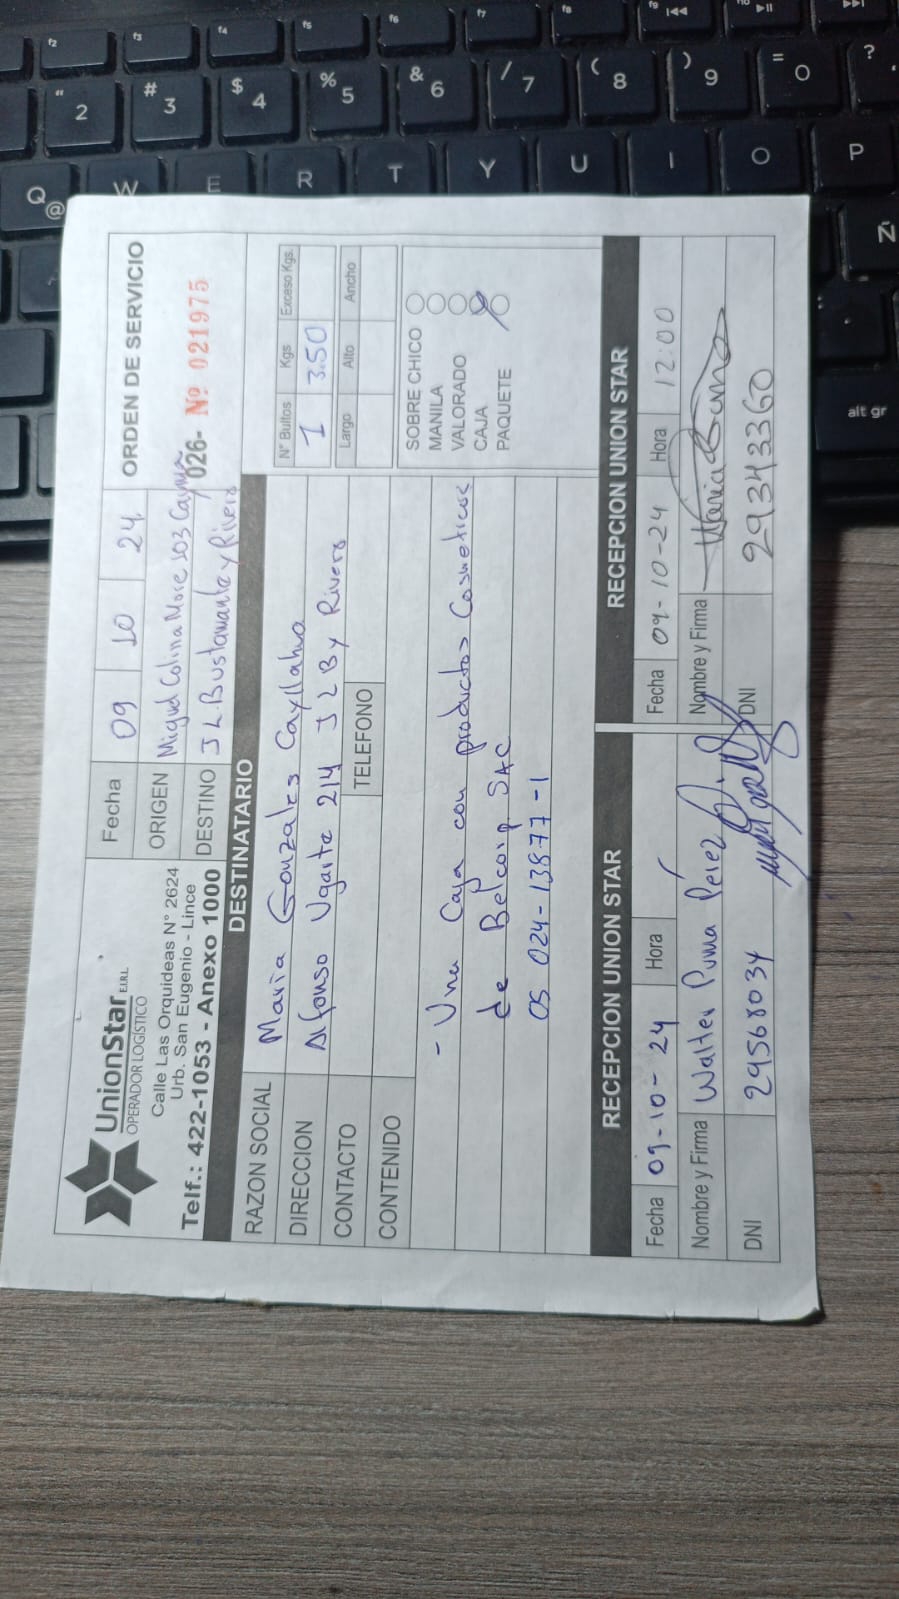 UnionStar E.I.R.L.
OPERADOR LOGÍSTICO
Calle Las Orquideas N° 2624
Urb. San Eugenio - Lince
Telf.: 422-1053 - Anexo 1000
Fecha 09 10 24
ORIGEN Miguel Colina More 503 Cayma
DESTINO J L Bustamante y Rivero
ORDEN DE SERVICIO
026- Nº 021975
DESTINATARIO
RAZON SOCIAL Maria Gonzales Cayllahua
DIRECCION Alfonso Ugarte 214 J L B y Rivero
CONTACTO
TELEFONO
CONTENIDO
- Una Caja con productos Cosmeticos
de Belcorp SAC
OS 024-13877-1
N° Bultos Kgs Exceso Kgs.
1 3.50
Largo Alto Ancho
SOBRE CHICO
MANILA
VALORADO
CAJA
PAQUETE
RECEPCION UNION STAR
Fecha 09-10-24 Hora
Nombre y Firma Walter Puma Perez
DNI 29568034
RECEPCION UNION STAR
Fecha 09-10-24 Hora 12:00
Nombre y Firma
DNI 29343360
" 2
# 3
$ 4
% 5
& 6
/ 7
( 8
) 9
= 0
?
Q @
W
E
R
T
Y
U
I
O
P
Ñ
alt gr
f2
f3
f4
f5
f6
f7
f8
f9
f10